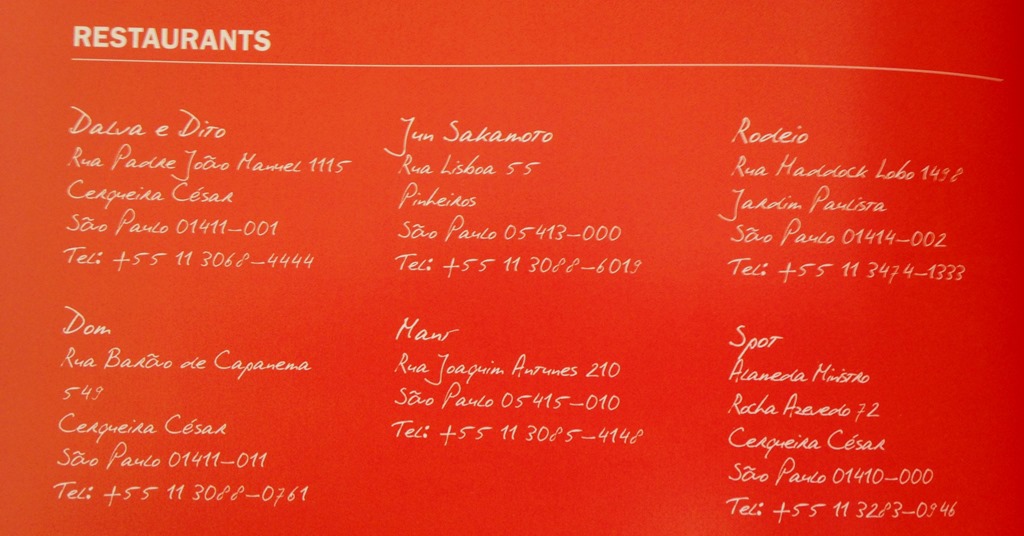 RESTAURANTS
Dalva e Dito
Rua Padre João Manuel 1115
Cerqueira César
São Paulo 01411–001
Tel: +55 11 3068–4444
Dom
Rua Barão de Capanema
549
Cerqueira César
São Paulo 01411–011
Tel: +55 11 3088–0761
Jun Sakamoto
Rua Lisboa 55
Pinheiros
São Paulo 05413–000
Tel: +55 11 3088–6019
Mani
Rua Joaquim Antunes 210
São Paulo 05415–010
Tel: +55 11 3085–4148
Rodeio
Rua Haddock Lobo 1498
Jardim Paulista
São Paulo 01414–002
Tel: +55 11 3474–1333
Spot
Alameda Ministro
Rocha Azevedo 72
Cerqueira César
São Paulo 01410–000
Tel: +55 11 3283–0946